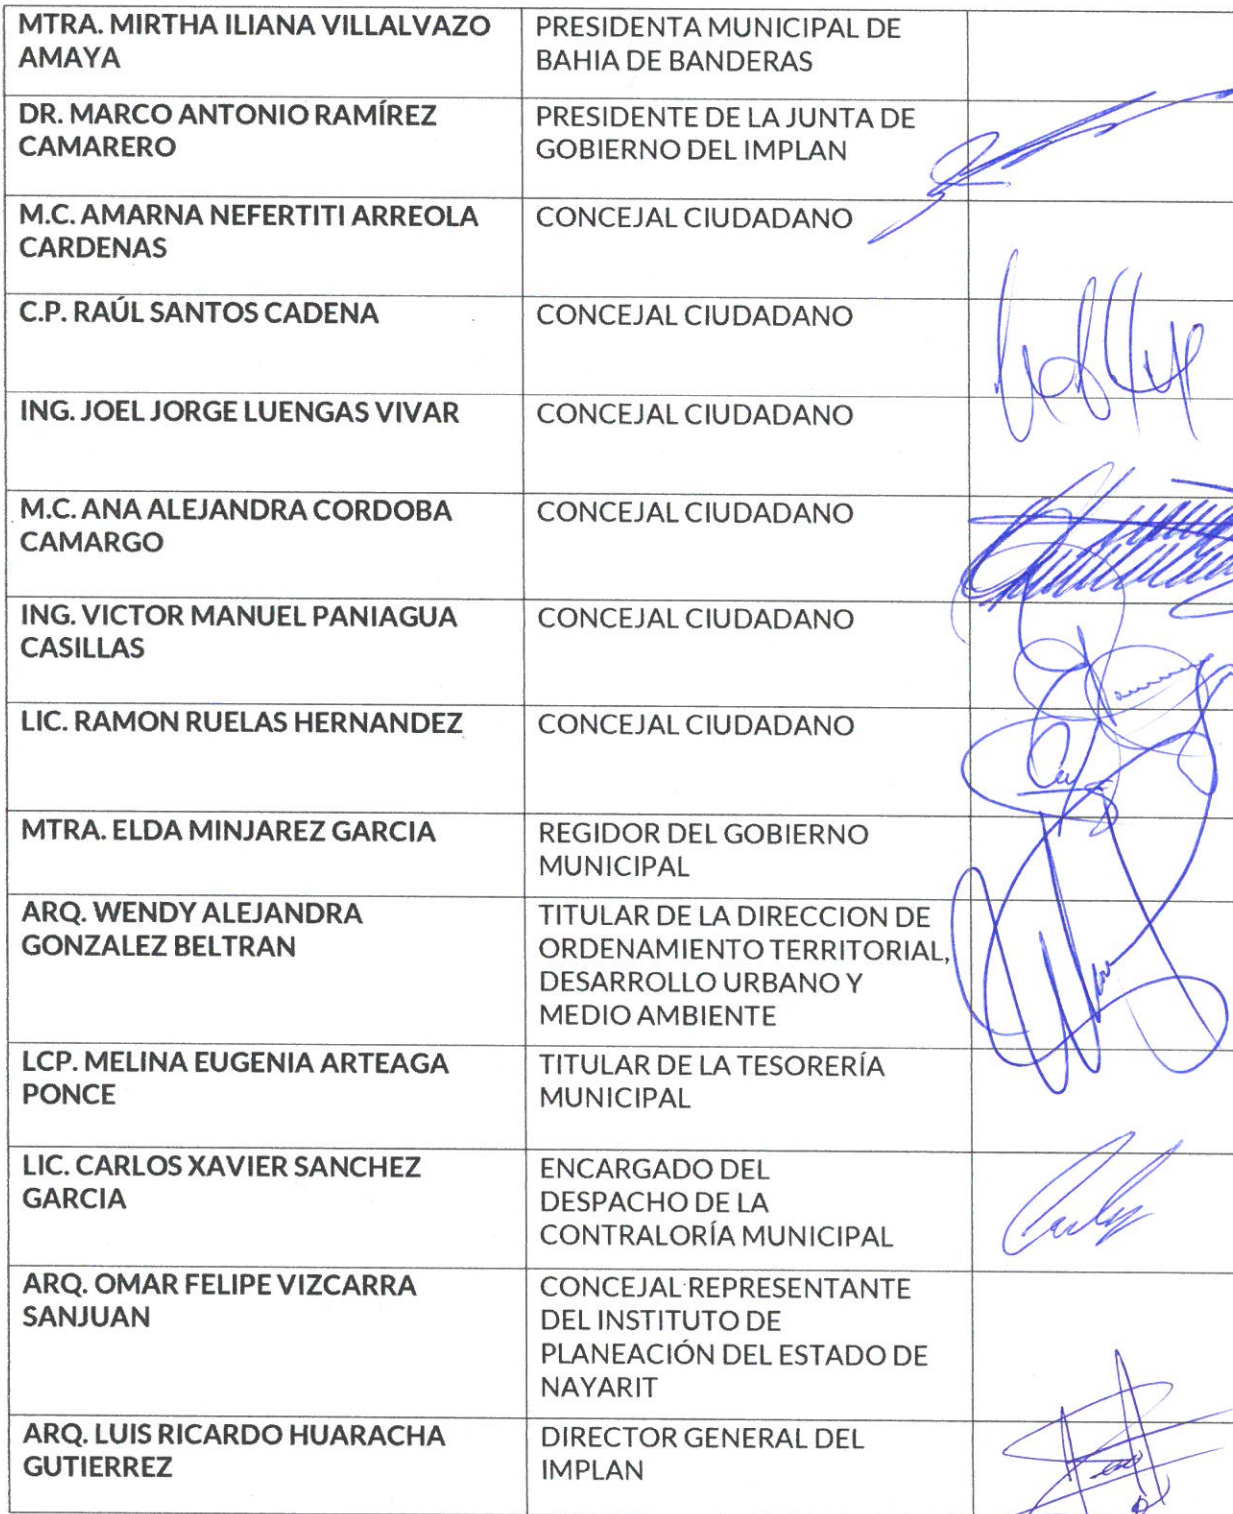 MTRA. MIRTHA ILIANA VILLALVAZO
AMAYA
PRESIDENTA MUNICIPAL DE
BAHIA DE BANDERAS
DR. MARCO ANTONIO RAMÍREZ
CAMARERO
PRESIDENTE DE LA JUNTA DE
GOBIERNO DEL IMPLAN
M.C. AMARNA NEFERTITI ARREOLA
CARDENAS
CONCEJAL CIUDADANO
C.P. RAÚL SANTOS CADENA
CONCEJAL CIUDADANO
ING. JOEL JORGE LUENGAS VIVAR
CONCEJAL CIUDADANO
M.C. ANA ALEJANDRA CORDOBA
CAMARGO
CONCEJAL CIUDADANO
ING. VICTOR MANUEL PANIAGUA
CASILLAS
CONCEJAL CIUDADANO
LIC. RAMON RUELAS HERNANDEZ
CONCEJAL CIUDADANO
MTRA. ELDA MINJAREZ GARCIA
REGIDOR DEL GOBIERNO
MUNICIPAL
ARQ. WENDY ALEJANDRA
GONZALEZ BELTRAN
TITULAR DE LA DIRECCION DE
ORDENAMIENTO TERRITORIAL,
DESARROLLO URBANO Y
MEDIO AMBIENTE
LCP. MELINA EUGENIA ARTEAGA
PONCE
TITULAR DE LA TESORERÍA
MUNICIPAL
LIC. CARLOS XAVIER SANCHEZ
GARCIA
ENCARGADO DEL
DESPACHO DE LA
CONTRALORÍA MUNICIPAL
ARQ. OMAR FELIPE VIZCARRA
SANJUAN
CONCEJAL REPRESENTANTE
DEL INSTITUTO DE
PLANEACIÓN DEL ESTADO DE
NAYARIT
ARQ. LUIS RICARDO HUARACHA
GUTIERREZ
DIRECTOR GENERAL DEL
IMPLAN